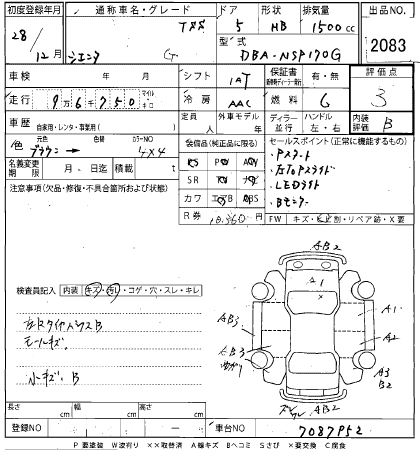 初度登録年月 通称車名・グレード ドア 形状 排気量 出品NO.
28/12月 シエンタ G 5 HB 1500cc 2083
型式 DBA-NSP170G
車検 年 月 シフト IAT 保証書 有・無 評価点 3
走行 9万6千750 マイル キロ 冷房 AAC 燃料 G 内装評価 B
車歴 自家用・レンタ・事業用( ) 定員 人 外車モデル 年 ディーラー・並行 ハンドル 左・右
色 元色 ブラウン 色替 カラーNO 4X4
名義変更期限 月 日迄 積載 t
装備品(純正品に限る)
PS PW AW
SR ナビ TV
カワ エアB ABS
R券 10,360円
セールスポイント(正常に機能するもの)
・Pスタート
・左右Pスライド
・LEDライト
・Bモニター
FW キズ・ヒビ割・リペア跡・X要
注意事項(欠品・修復・不具合箇所および状態)
検査員記入 内装 キズ・汚レ・コゲ・穴・スレ・キレ
モールキズ
小キズ、B
AB2
A1
AB3
A1
A2
AB3
A3
B2
AB2
長さ cm 幅 cm 高さ cm
登録NO 車台NO 7087952
P 要塗装 W波有り ××取替済 A線キズ Bヘコミ Sさび ×要交換 C腐食